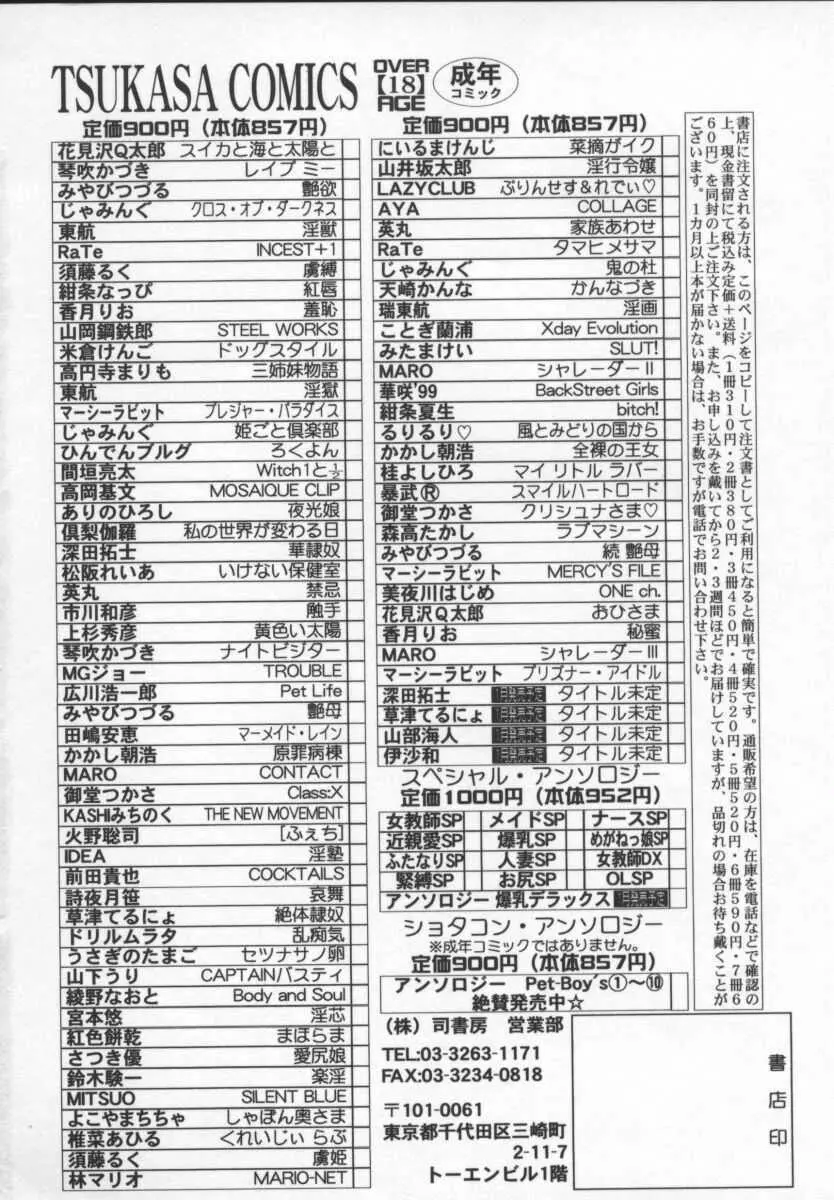 TSUKASA COMICS
OVER【18】AGE
成年コミック
定価900円（本体857円）
花見沢Q太郎 スイカと海と太陽と
琴吹かづき レイプ ミー
みやびつづる 艶欲
じゃみんぐ クロス・オブ・ダークネス
東航 淫獣
RaTe INCEST+1
須藤るく 虜縛
紺条なっぴ 紅唇
香月りお 羞恥
山岡鋼鉄郎 STEEL WORKS
米倉けんご ドッグスタイル
高円寺まりも 三姉妹物語
東航 淫獄
マーシーラビット プレジャー・パラダイス
じゃみんぐ 姫ごと倶楽部
ひんでんブルグ ろくよん
間垣亮太 Witch1と½
高岡基文 MOSAIQUE CLIP
ありのひろし 夜光娘
倶梨伽羅 私の世界が変わる日
深田拓士 華隷奴
松阪れいあ いけない保健室
英丸 禁忌
市川和彦 触手
上杉秀彦 黄色い太陽
琴吹かづき ナイトビジター
MGジョー TROUBLE
広川浩一郎 Pet Life
みやびつづる 艶母
田嶋安恵 マーメイド・レイン
かかし朝浩 原罪病棟
MARO CONTACT
御堂つかさ Class:X
KASHIみちのく THE NEW MOVEMENT
火野聡司 [ふぇち]
IDEA 淫塾
前田貴也 COCKTAILS
詩夜月笹 哀舞
草津てるにょ 絶体隷奴
ドリルムラタ 乱痴気
うさぎのたまご セツナサノ卵
山下うり CAPTAINバスティ
綾野なおと Body and Soul
宮本悠 淫芯
紅色餅乾 まほらま
さつき優 愛尻娘
鈴木験一 楽淫
MITSUO SILENT BLUE
よこやまちちゃ しゃぼん奥さま
椎菜あひる くれいじぃ らぶ
須藤るく 虜姫
林マリオ MARIO-NET
定価900円（本体857円）
にいるまけんじ 菜摘がイク
山井坂太郎 淫行令嬢
LAZYCLUB ぷりんせす&れでぃ♡
AYA COLLAGE
英丸 家族あわせ
RaTe タマヒメサマ
じゃみんぐ 鬼の杜
天崎かんな かんなづき
瑞東航 淫画
ことぎ蘭浦 Xday Evolution
みたまけい SLUT!
MARO シャレーダーⅡ
華咲'99 BackStreet Girls
紺条夏生 bitch!
るりるり♡ 風とみどりの国から
かかし朝浩 全裸の王女
桂よしひろ マイ リトル ラバー
暴武Ⓡ スマイルハートロード
御堂つかさ クリシュナさま♡
森高たかし ラブマシーン
みやびつづる 続 艶母
マーシーラビット MERCY'S FILE
美夜川はじめ ONE ch.
花見沢Q太郎 おひさま
香月りお 秘蜜
MARO シャレーダーⅢ
マーシーラビット プリズナー・アイドル
深田拓士 1月発売予定 タイトル未定
草津てるにょ 1月発売予定 タイトル未定
山部海人 1月発売予定 タイトル未定
伊沙和 1月発売予定 タイトル未定
スペシャル・アンソロジー
定価1000円（本体952円）
女教師SP メイドSP ナースSP
近親愛SP 爆乳SP めがねっ娘SP
ふたなりSP 人妻SP 女教師DX
緊縛SP お尻SP OLSP
アンソロジー 爆乳デラックス 1月発売予定
ショタコン・アンソロジー
※成年コミックではありません。
定価900円（本体857円）
アンソロジー Pet-Boy's①〜⑩
絶賛発売中☆
（株）司書房 営業部
TEL:03-3263-1171
FAX:03-3234-0818
〒101-0061
東京都千代田区三崎町
2-11-7
トーエンビル1階
書店印
書店に注文される方は、このページをコピーして注文書としてご利用になると簡単で確実です。通販希望の方は、在庫を電話などで確認の
上、現金書留にて税込み定価＋送料（1冊310円・2冊380円・3冊450円・4冊520円・5冊520円・6冊590円・7冊6
60円）を同封の上ご注文下さい。また、お申し込みを戴いてから2・3週間ほどでお届けしていますが、品切れの場合お待ち戴くことが
ございます。1カ月以上本が届かない場合は、お手数ですが電話でお問い合わせ下さい。